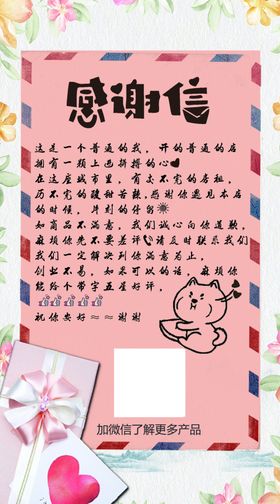 感谢信
这是一个普通的我，开的普通的店
拥有一颗上面拼搏的心
在这座城市里，有交不完的房租，
历不完的酸甜苦辣，感谢你遇见本店
的时候，片刻的停留
如商品不满意，我们诚心向你道歉，
麻烦你先不要差评 请及时联系我们
我们一定解决到你满意为止，
创业不易，如果可以的话，麻烦你
能给个带字五星好评，
祝你安好~~谢谢
加微信了解更多产品